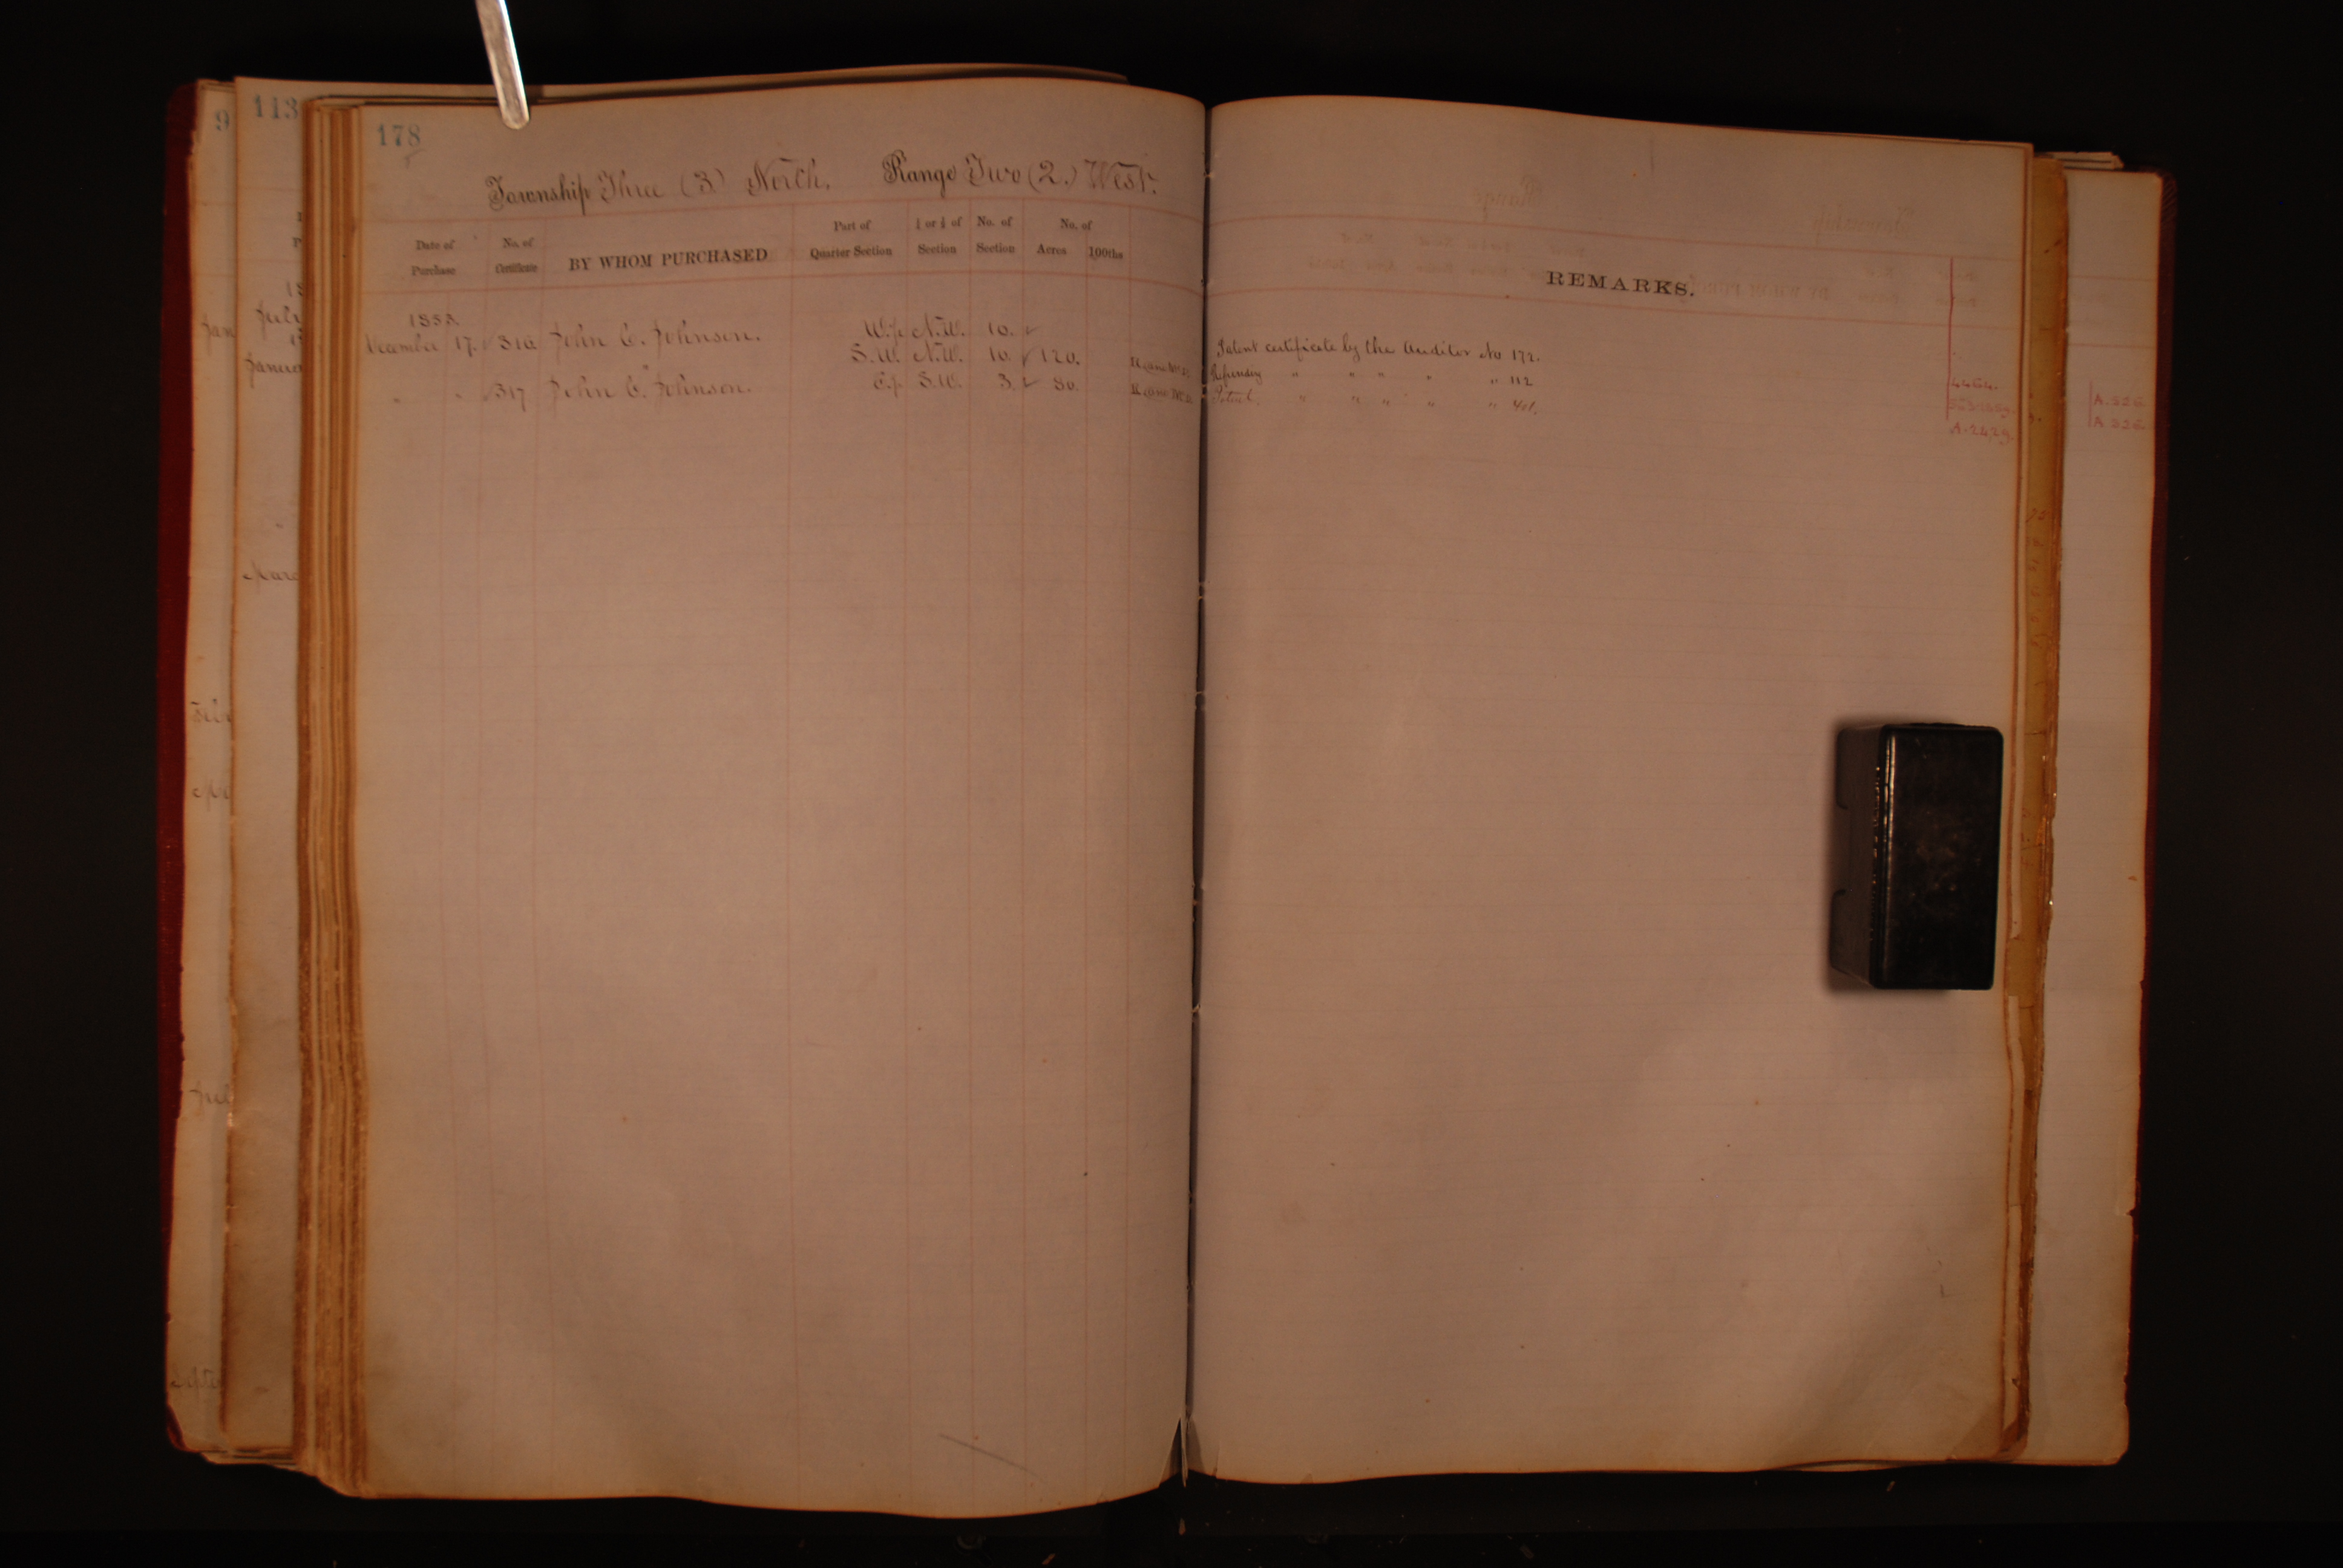 178
Township Three (3) North. Range Two (2.) West.
Date of Purchase No. of Certificate BY WHOM PURCHASED Part of Quarter Section ½ or ¼ of Section No. of Section No. of Acres 100ths
REMARKS.
1853.
December 17. 316 John C. Johnson. W.p N.W. 10.
S.W. N.W. 10 120.
" " 317 John C. Johnson. E.p S.W. 3. 80.
Patent certificate by the Auditor No 172.
Refunding " " " " " 112
Patent. " " " " " 401.
A.2429.
9
113
July
Jan
A.526
A.526